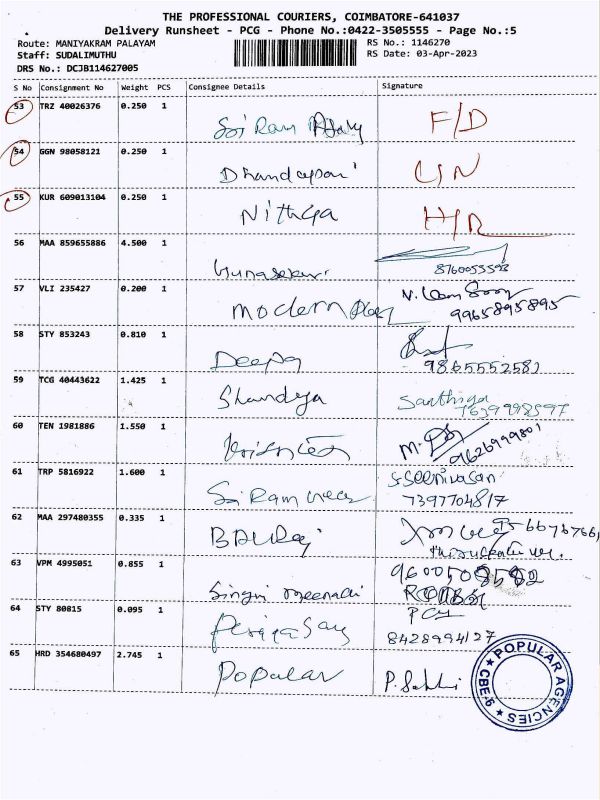 THE PROFESSIONAL COURIERS, COIMBATORE-641037
Delivery Runsheet - PCG - Phone No.:0422-3505555 - Page No.:5
Route: MANIYAKRAM PALAYAM RS No.: 1146270
Staff: SUDALIMUTHU RS Date: 03-Apr-2023
DRS No.: DCJB114627005
S No Consignment No Weight PCS Consignee Details Signature
53 TRZ 40026376 0.250 1 Sri Ram F/D
54 GGN 98058121 0.250 1 Dhandapani
55 KUR 609013104 0.250 1 Nithya
56 MAA 859655886 4.500 1 Gunasekar
57 VLI 235427 0.200 1 Modern 9965895895
58 STY 853243 0.810 1 Deepa 9865552582
59 TCG 40443622 1.425 1 Shandya Santhiya 7639998597
60 TEN 1981886 1.550 1 9626999801
61 TRP 5816922 1.600 1 Sri Ram S. Seenivasan 7397704817
62 MAA 297480355 0.335 1
63 VPM 4995051 0.855 1 Singvi meenadi
64 STY 80815 0.095 1 8428994127
65 HRD 354680497 2.745 1 Popular
POPULAR AGENCIES
CBE-9